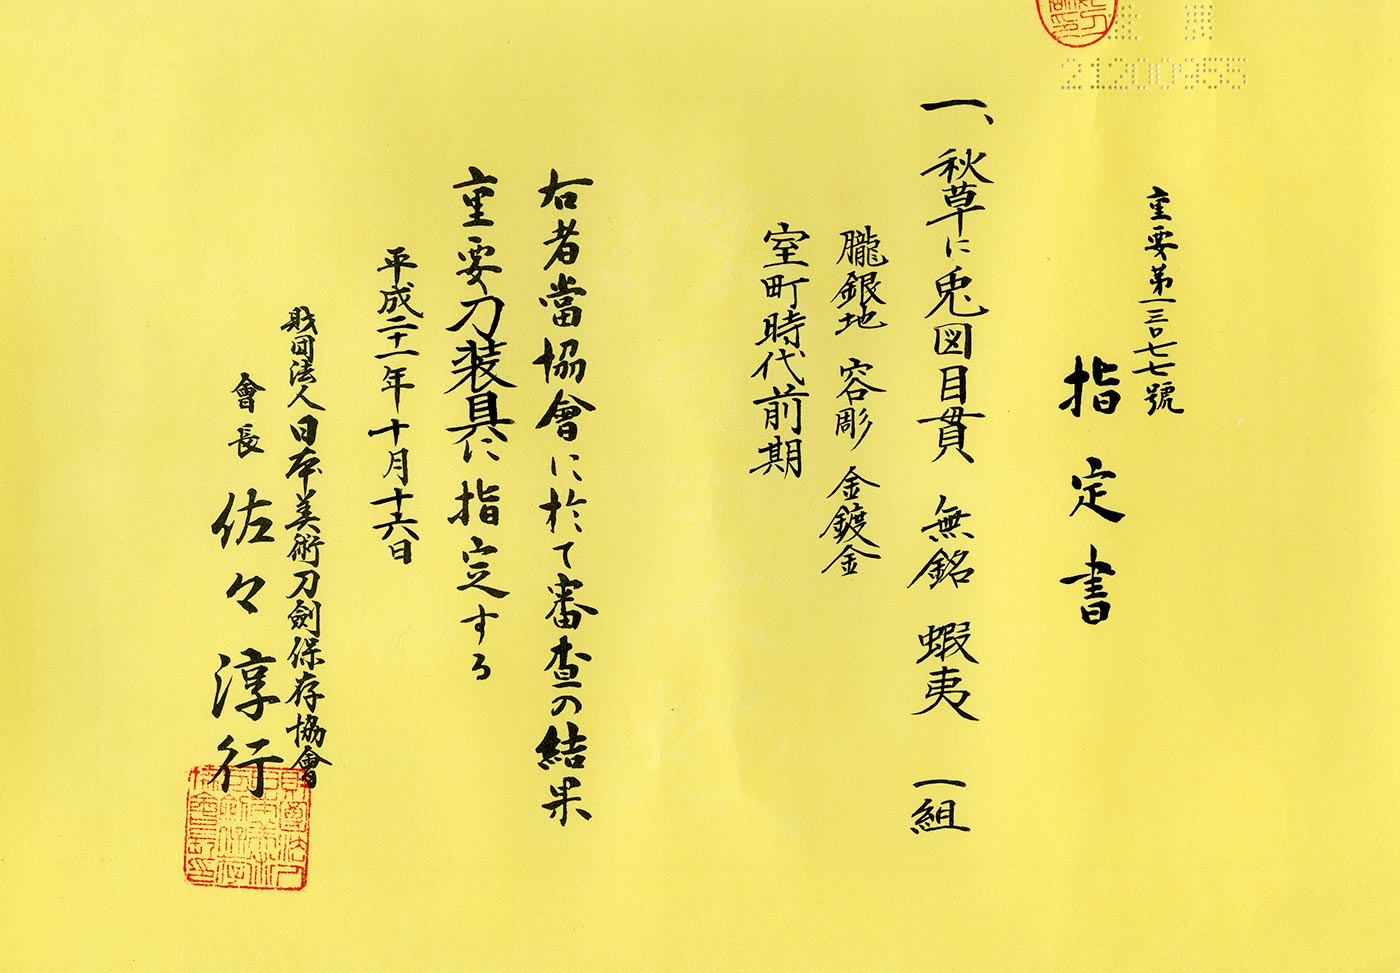 21200955
重要第一三〇七七號
指定書
一、秋草に兎図目貫 無銘 蝦夷 一組
朧銀地 容彫 金鍍金
室町時代前期
右者當協會に於て審査の結果
重要刀装具に指定する
平成二十一年十月十六日
財団法人日本美術刀劍保存協會
會長 佐々淳行